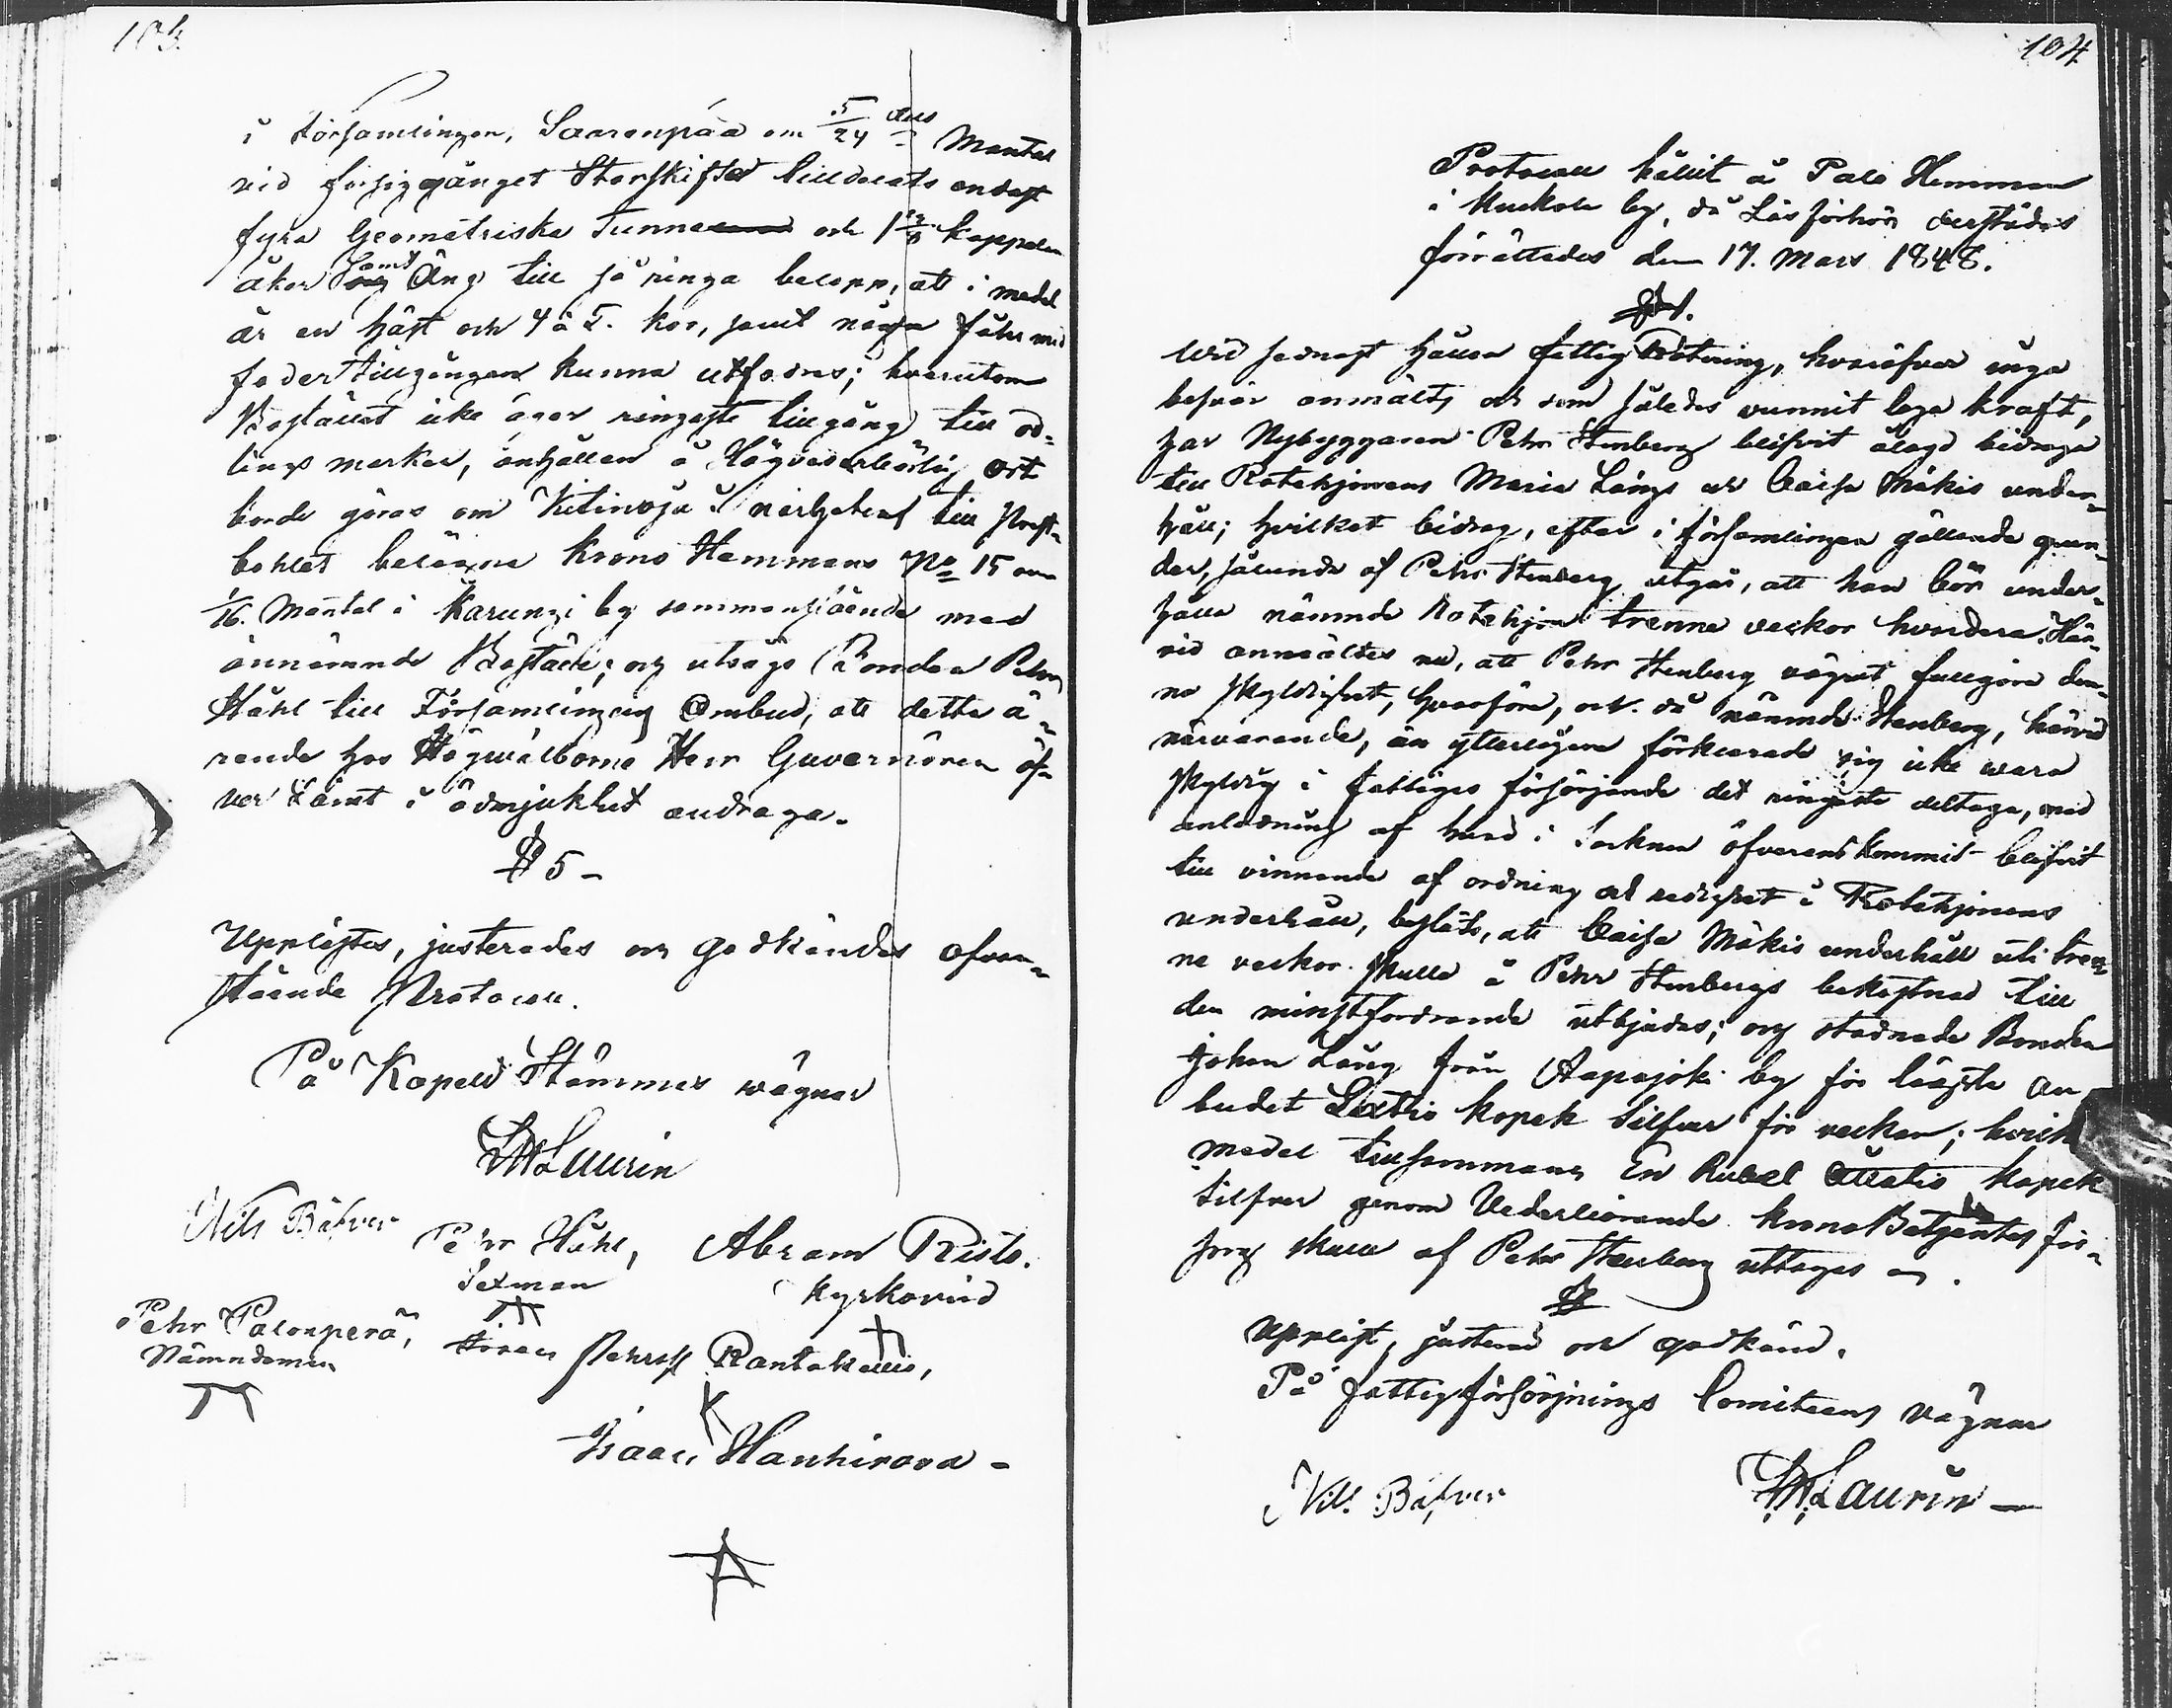 103.
i Församlingen, Saarenpää om 5/24 dels Mantal
vid försiggånget Storskifte tilldelats endast
fyra Geometriska Tunne och 1 kappeland
åker samt Äng till så ringa belopp, att i medel
år en häst och 4 à 5. kor, samt några fåhr med
fodertillgången kunna utfodras; hvarutom
Bostället icke äger ringaste tillgång till od=
lings marker, anhållan å Högvederbörlig ort
borde göras om Kitinoja i närheten till Prest=
bohlet belägne Krono Hemmans No 15 om
1/16. Mantal i Karungi by sammanslående med
önnämnde Boställe; och utsågs Bonden Pehr
Ståhl till Församlingens Ombud, att detta ä=
rende hos Högwälborne Herr Guvernören öf=
ver Länet i ödmjukhet andraga.
§ 5 -
Upplästes, justerades och godkändes ofvan=
stående Protocoll.
På Kapell Stämmes vägnar
LMLaurin
Nils Bäfver
Pehr Ståhl, Abram Risto.
Sexman Kyrkovärd
Pehr Palonperä, Pehrss. Rantakallio,
Nämndeman
Isaac Hanhirova -
104.
Protocoll hållit å Palo Hemman
i Kuckola by, då Läsförhör derstädes
förrättades den 17. Mars 1848.
§ 1.
Wid sednast hållen fattig Rotering, hvaröfver inga
besvär anmälts och som således vunnit laga kraft,
har Nybyggaren Pehr Stenberg blifvit ålagd bidraga
till Rotehjonens Maria Längs och Caisa Mäkis under=
håll; hvilket bidrag, efter i församlingen gällande grun=
der, sålunda af Pehr Stenberg utgår, att han bör under=
hålla nämnde Rotehjon trenne veckor hvardera. Här=
vid anmältes nu, att Pehr Stenberg vägrat fullgöra den=
na skyldighet, hvarföre, och då nämnde Stenberg, härvid
närvarande, än ytterligare förklarade sig icke wara
skyldig i fattiges försörjande det ringaste deltaga, med
anledning af hvad i Socknen öfverenskommit blifvit
till vinnande af ordning och redighet i Rotehjonens
underhåll, beslöts, att Caisa Mäkis underhåll uti tren=
ne veckor skulle å Pehr Stenbergs bekostnad till
den minstfordrande utbjudas; och stadnade Bonden
Johan Läng från Aapajoki by för lägsta an
budet Sextio kopek Silfver för veckan; hvilka
medel tillsammans En Rubel Åttatio kopek
Silfver genom Vederbörande krono Betjentes för=
sorg skulle af Pehr Stenberg uttagas.
§
Uppläst, justerad och godkänd.
På fattigförsörjnings Comiteens vägnar
Nils Bäfver LMLaurin -